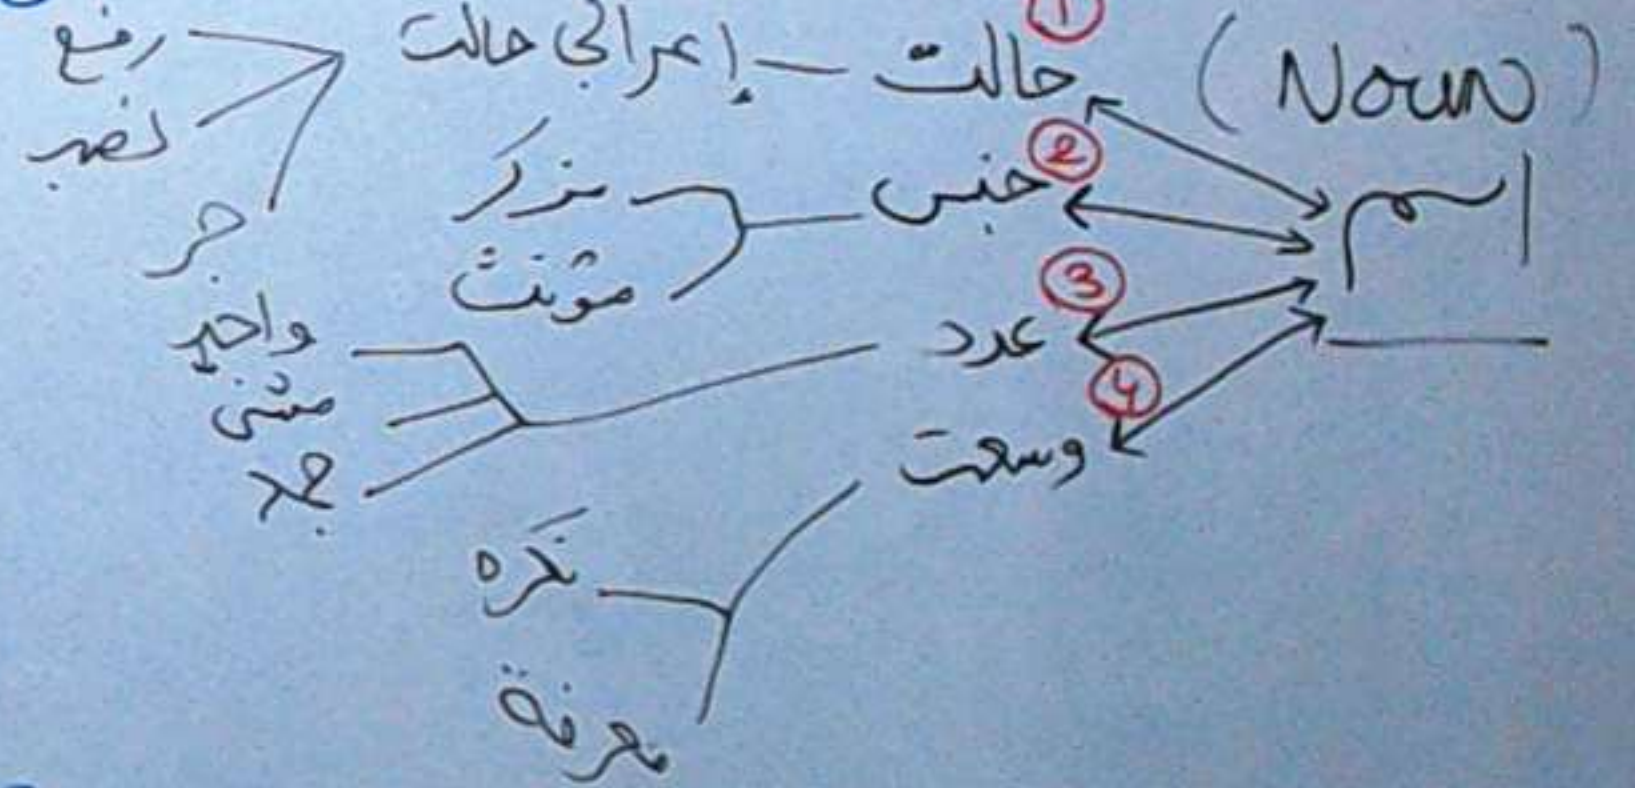 (Noun)
اسم
① حالت — إعرابی حالت
رفع
نصب
جر
② جنس
مذکر
مؤنث
③ عدد
واحد
مثنی
جمع
④ وسعت
نکره
معرفة